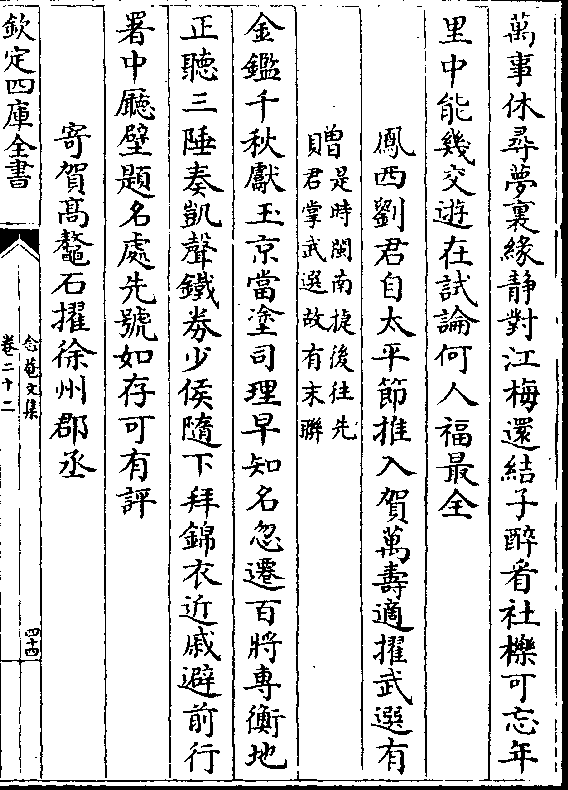 萬事休尋夢裏緣静對江梅還結子醉看社櫟可忘年
里中能幾交遊在試論何人福最全
鳳西劉君自太平節推入賀萬壽適擢武選有
贈是時閩南捷後往先
貝君掌武選故有末聯
金鑑千秋獻玉京當塗司理早知名忽遷百將專衡地
正聽三陲奏凱聲鐵券少侯隨下拜錦衣近戚避前行
署中廳壁題名處先號如存可有評
寄賀髙鼇石擢徐州郡丞
欽定四庫全書
念菴文集
卷二十二
四十四